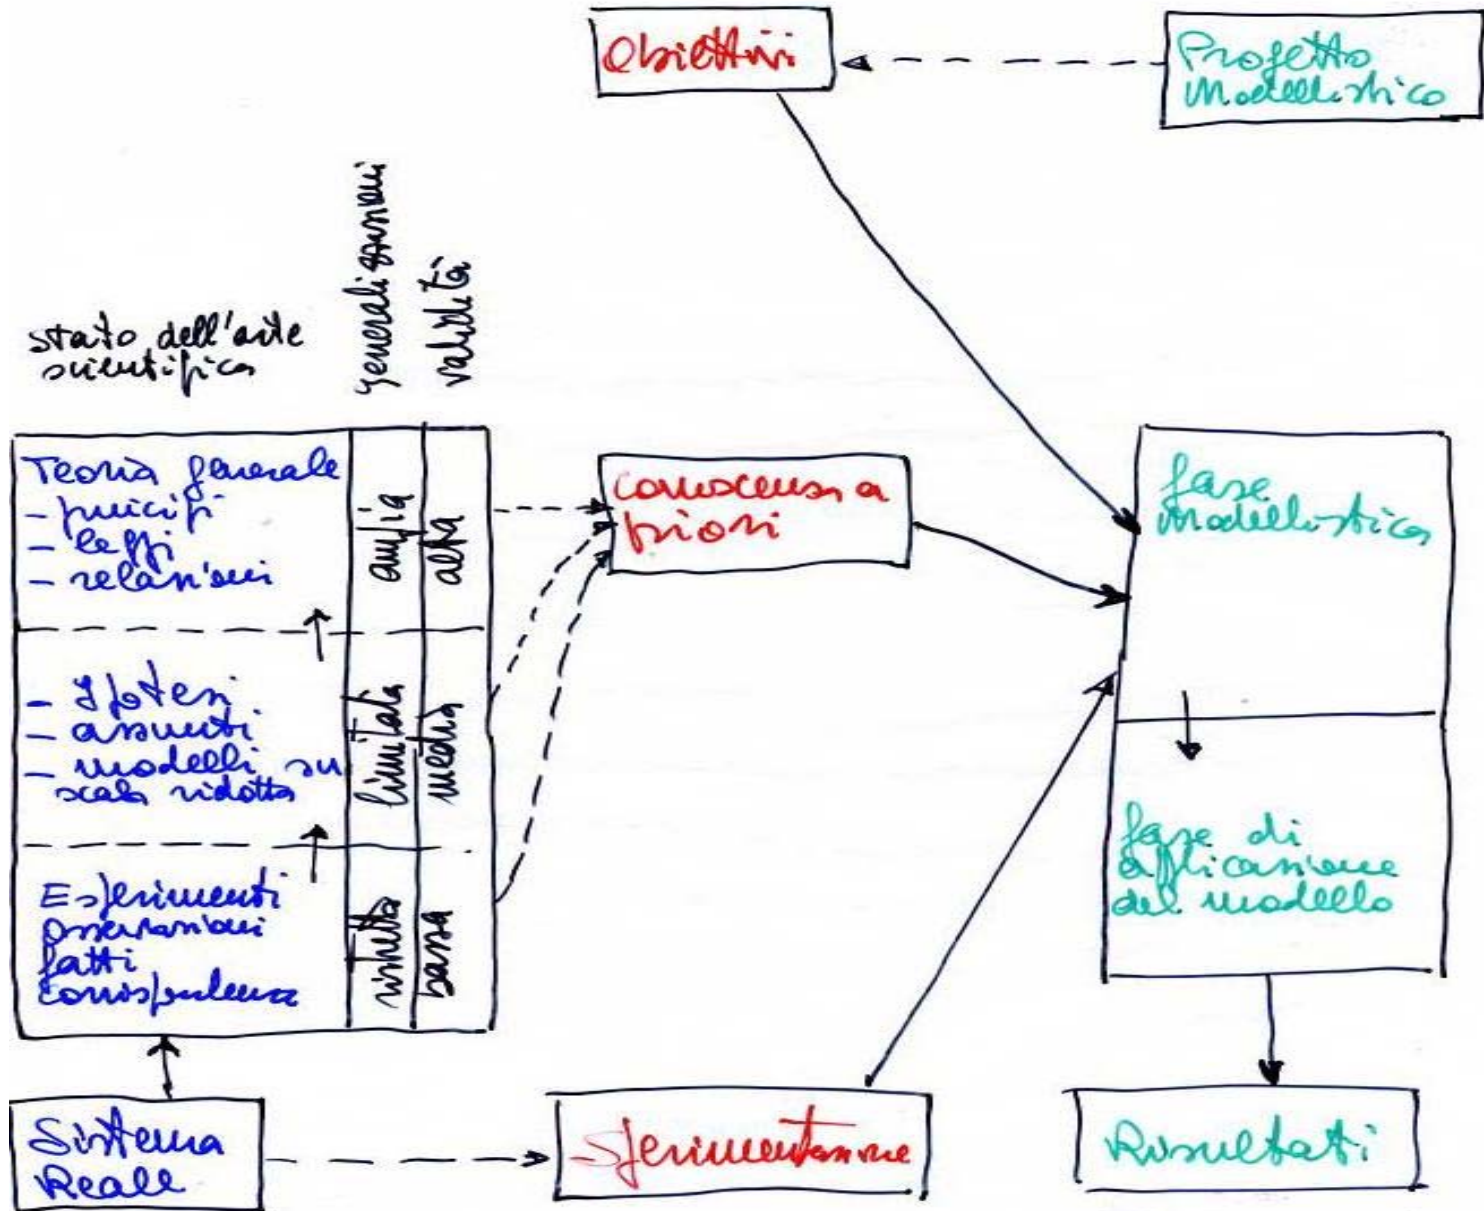 Obiettivi
Progetto
Modellistico
generalizzazioni
validità
stato dell'arte
scientifica
Teoria generale
- principi
- leggi
- relazioni
ampia
alta
- Ipotesi
- assunti
- modelli su
scala ridotta
limitata
media
Esperimenti
osservazioni
fatti
corrispondenza
ristretta
bassa
conoscenza a
priori
fase
Modellistica
fase di
applicazione
del modello
Sistema
Reale
Sperimentazione
Risultati